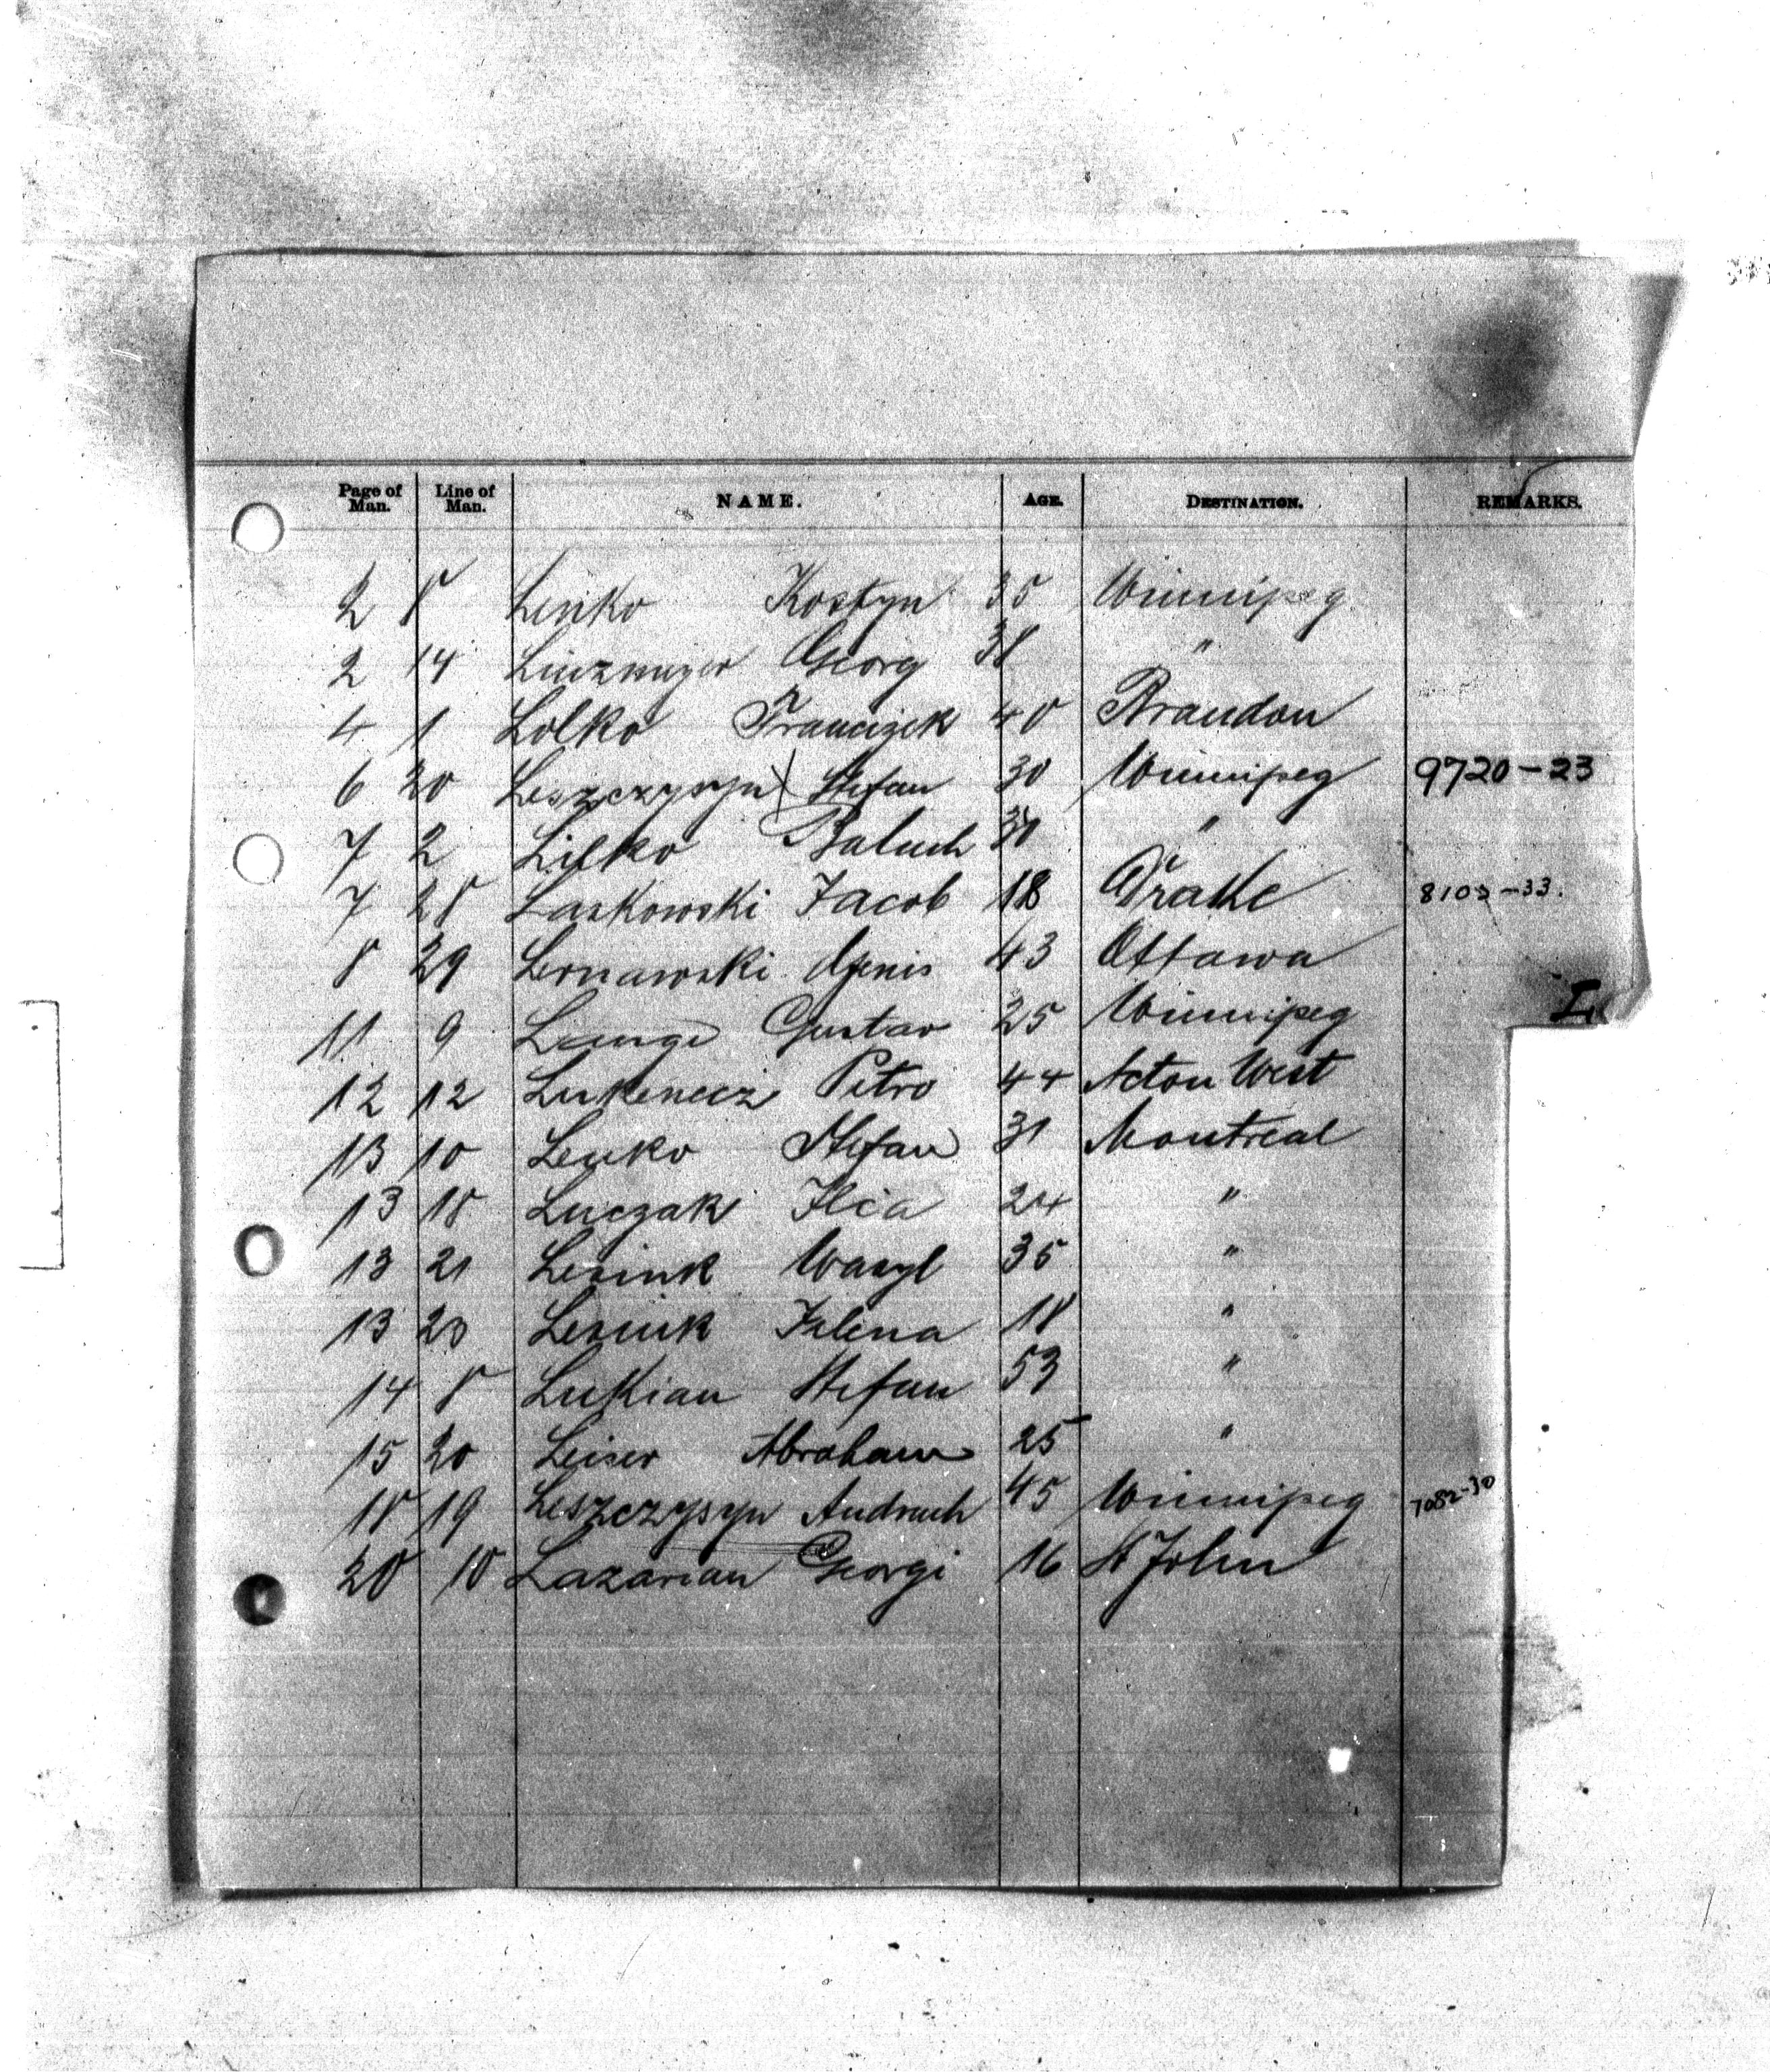 Page of Man. Line of Man. NAME. AGE. DESTINATION. REMARKS.
2 8 Lesko Kostyn 35 Winnipeg
2 14 Georg 38 "
4 1 Lolko Francizek 40 Brandon
6 20 Leszczysyn Stefan 30 Winnipeg 9720-23
7 2 Lilko Baluch "
7 28 Laskowski Jacob 18 Drake -33.
8 29 43 Ottawa
11 9 Lange Gustav 25 Winnipeg
L
12 12 Lukenecz Petro 44 Acton West
13 10 Lenko Stefan 31 Montreal
13 18 Luczak Ilia 24 "
13 21 Lesiuk Wasyl 35 "
13 23 Lesiuk 18 "
14 8 Lukian Stefan 53 "
15 20 Leiser Abraham 25 "
18 19 Leszczysyn Andruch 45 Winnipeg 7082-30
20 10 Lazarian Georgi 16 St John